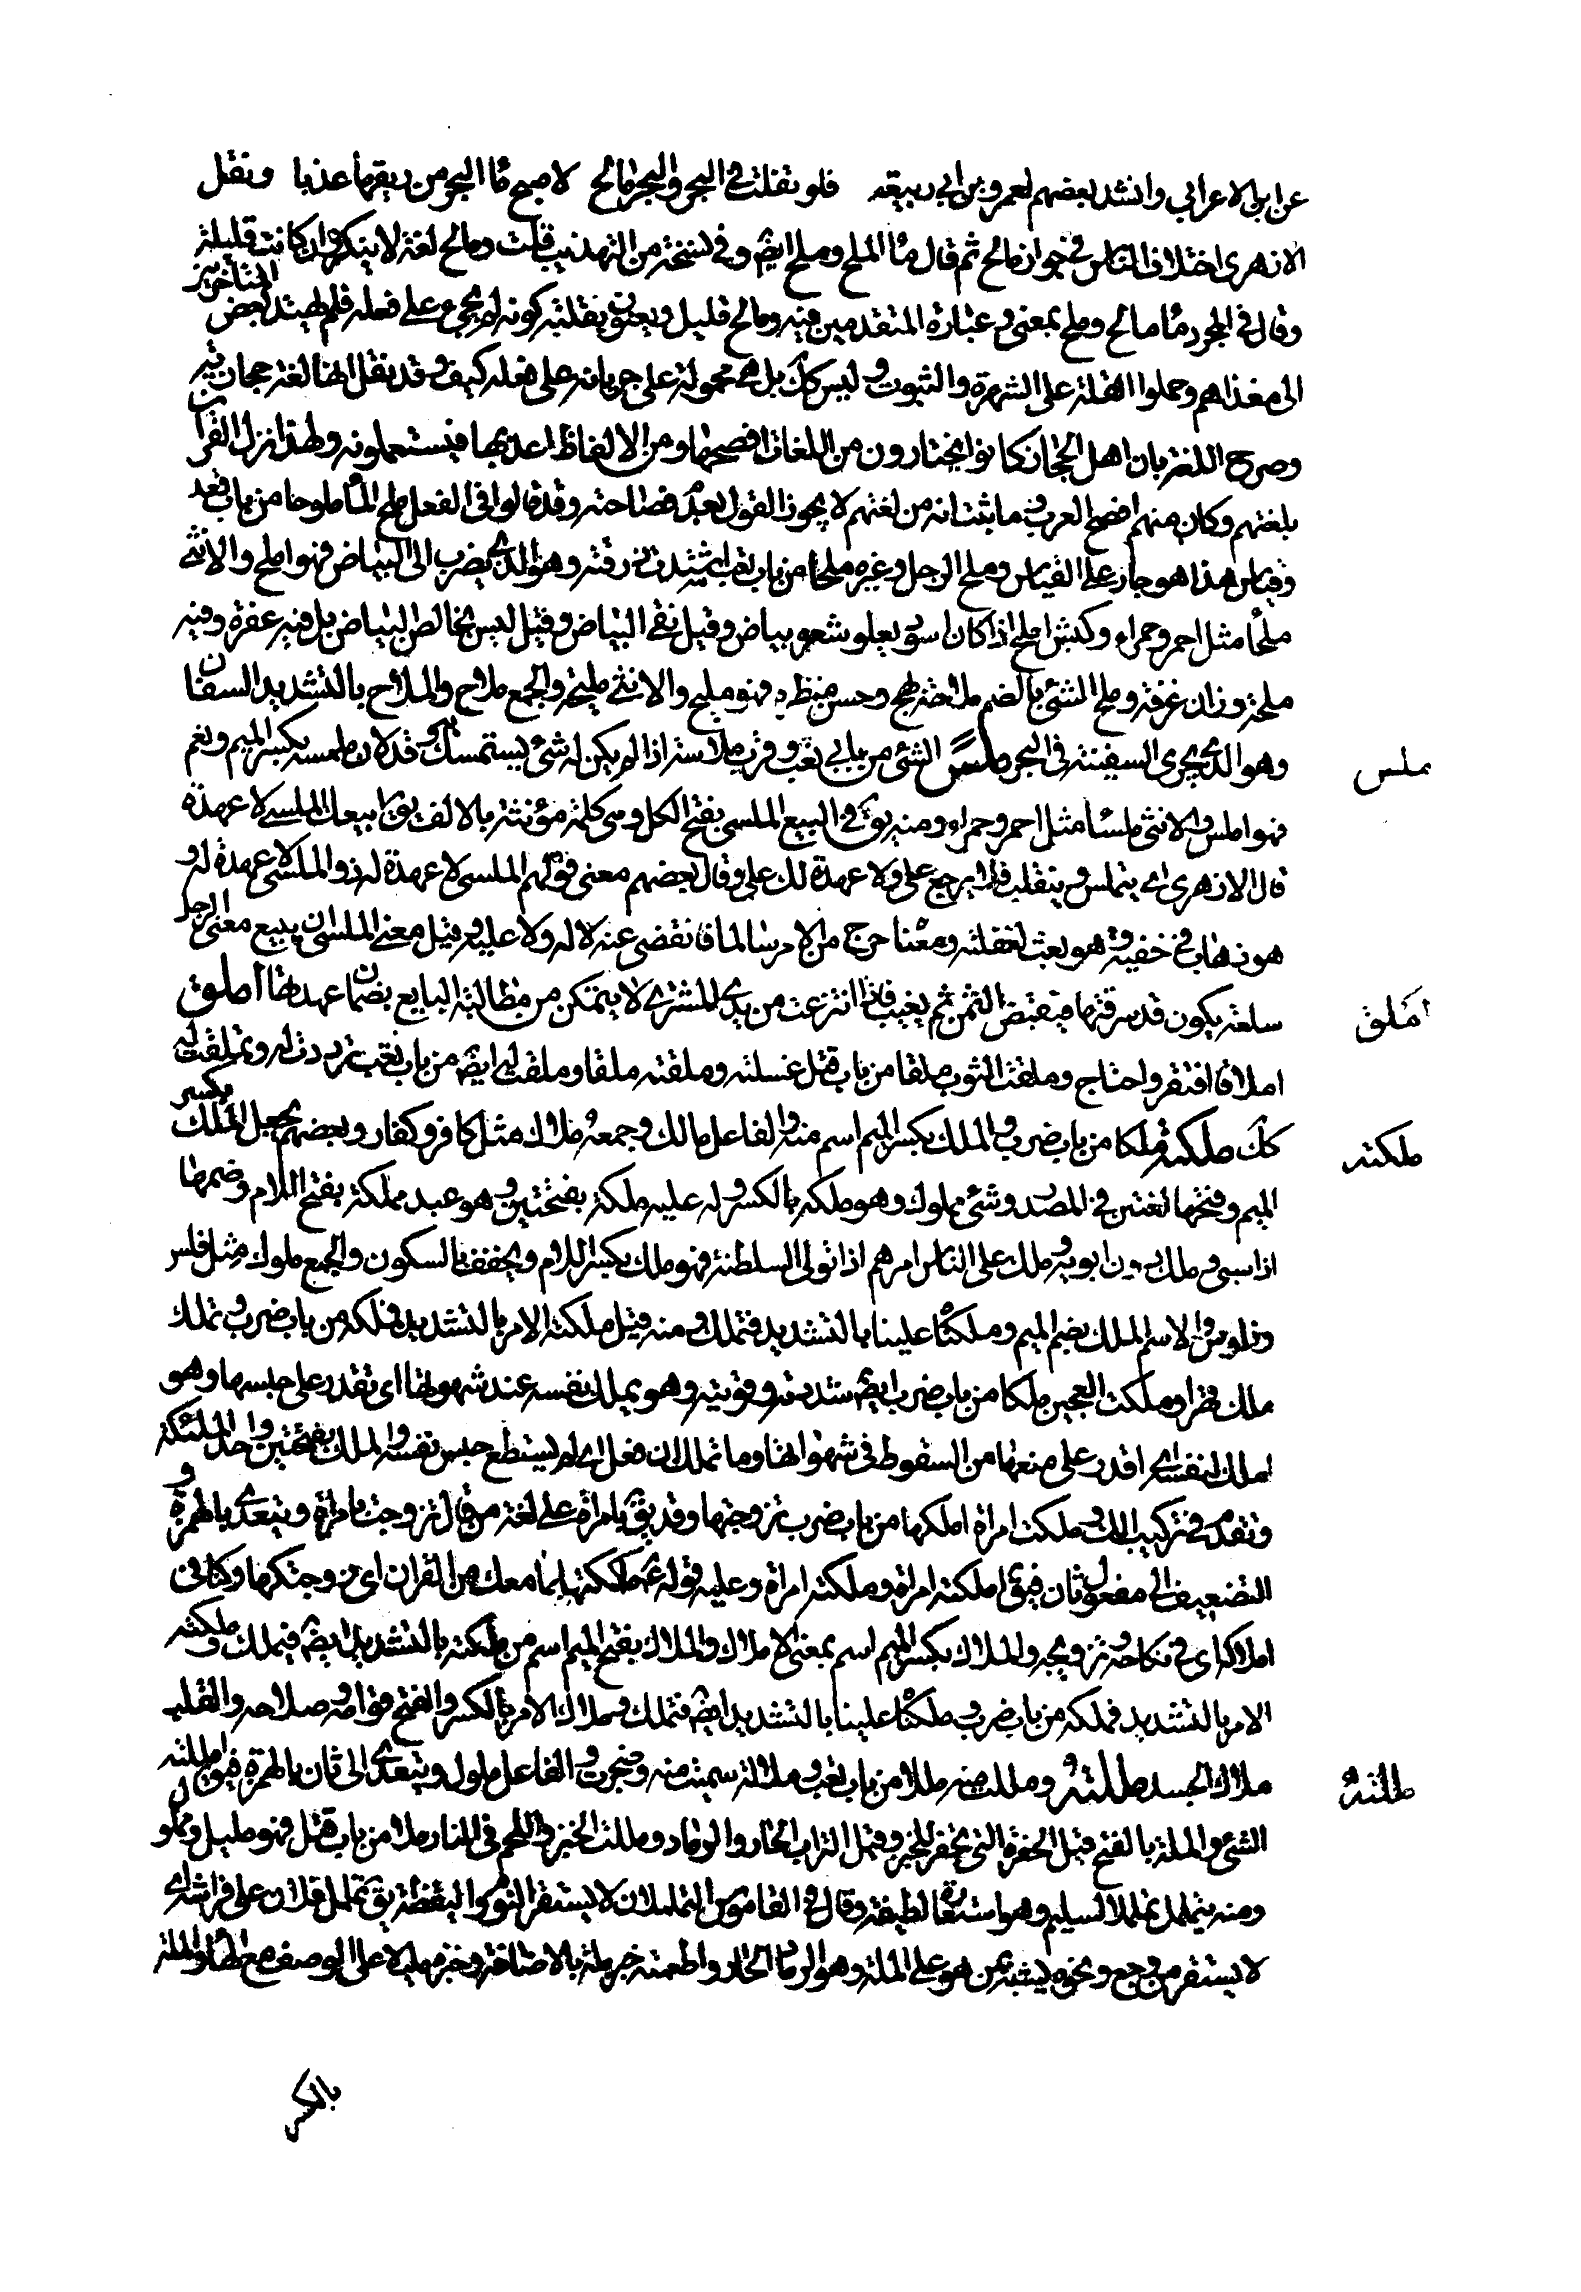 عن ابن الاعرابي وانشد بعضهم لعمرو بن ابي ربيعة فلو تفلت في البحر والبحر مالح لاصبح ماء البحر من ريقها عذبا ونقل
الازهرى اختلاف الناس في جواز مالح ثم قال ماء الملح وملح ايضا وفي نسخة من التهذيب قلت ومالح لغة لا ينكر وان كانت قليلة
وقال في المجرد ماء مالح وملح بمعنى وعبارة المتقدمين فيه ومالح قليل ويعنون بقلته كونه لم يجئ على فعله فلم يهتد بعض المتأخرين
الى مغزاهم وحملوا القلة على الشهرة والثبوت وليس كك بل هي محمولة على جريانه على فعله كيف وقد نقل انها لغة حجازية
وصرح اللغة بان اهل الحجاز كانوا يختارون من اللغات افصحها ومن الالفاظ اعذبها فيستعملونه ولهذا نزل القران
بلغتهم وكان منهم افصح العرب وما ثبت انه من لغتهم لا يجوز القول بعدم فصاحته وقد قالوا في الفعل ملح الماء ملوحا من باب قعد
وقياس هذا هو جار على القياس وملح الرجل وغيره ملحا من باب تعب اشتدت زرقته وهو الذي يضرب الى البياض فهو املح والانثى
ملحا مثل احمر وحمراء وكبش املح اذا كان اسود يعلو شعره بياض وقيل نقي البياض وقيل ليس بخالص البياض بل فيه عفرة وفيه
ملحة وزان غرفة وملح الشئ بالضم ملاحة بهج وحسن منظره فهو مليح والانثى مليحة والجمع ملاح والملاح بالتشديد السفان
وهو الذي يجرى السفينة في البحر ملس الشئ من بابي تعب وقرب ملاسة اذا لم يكن له شئ يستمسك وقد لان ملمسه بكسر الميم ونعم
ملس
فهو املس والانثى ملساء مثل احمر وحمراء ومنه يق في البيع الملسى بفتح الكل وهي كلمة مؤنثة بالالف يق ابيعك الملسى لا عهدة
قال الازهرى اى يتملس ويتفلت فلا يرجع على ولا عهدة لك على وقال بعضهم معنى قولهم الملسى لا عهدة له ذو الملسى لا عهدة له و
هو ذهاب في خفية وهو نعت لفعلته ومعناه خرج من الامر سالما فانقضى عنه لا له ولا عليه وقيل معنى الملسى ان يبيع معنى الرجل
سلعة يكون قد سرقها فيقبض الثمن ثم يغيب فاذا انتزعت من يدي المشترى لا يتمكن من مطالبة البايع بضمان عهدتها املق
املق
املاقا افتقر واحتاج وملقت الثوب ملقا من باب قتل غسلته وملقته ملقا وملقت له ايضا من باب تعب توددت له وتملقت له
كك ملكته ملكا من باب ضرب والملك بكسر الميم اسم منه والفاعل مالك وجمعه ملاك مثل كافر وكفار وبعضهم يجعل الملك بكسر
ملكته
الميم وفتحها لغتين في المصدر وشئ مملوك وهو ملكه بالكسر وله عليه ملكة بفتحتين وهو عبد مملكة بفتح اللام وضمها
اذا سبى وملك دون ابويه وملك على الناس امرهم اذا تولى السلطنة فهو ملك بكسر اللام ويخفف بالسكون والجمع ملوك مثل فلس
وفلوس والاسم الملك بضم الميم وملكناه علينا بالتشديد فتملك ومنه قيل ملكته الامر بالتشديد فملكه من باب ضرب وتملك
ملك وملكت العجين ملكا من باب ضرب ايضا شددته وقويته وهو يملك نفسه عند شهوتها اى يقدر على حبسها وهو
املك لنفسه اى اقدر على منعها من السقوط في شهواتها وما تملك ان فعل اى لم يستطع حبس نفسه والملك بفتحتين واحد الملئكة
وتقدم في تركيب الك وملكت امراة املكها من باب ضرب تزوجتها وقد يق بامراة على لغة من قال تزوجت بامراة ويتعدى بالهمزة و
التضعيف الى مفعول ثان فيق املكته امراة وملكته امراة وعليه قوله ملكتكها بما معك من القران اى زوجتكها وكنا في
املاكه اى في نكاحه وتزويجه والملاك بكسر الميم اسم بمعنى الاملاك والملاك بفتح الميم اسم من ملكته بالتشديد ايضا فيملك وملكته
الامر بالتشديد فملكه من باب ضرب وملكناه علينا بالتشديد ايضا فتملك وملاك الامر بالكسر والفتح قوامه وصلاحه والقلب
ملاك الجسد مللته ومللت منه مللا من باب تعب وملالة سئمت منه وضجرت والفاعل ملول ويتعدى الى ثان بالهمزة فيق امللته
مللته
الشئ والملة بالفتح قيل الحفرة التى تحفر للخبز وقيل التراب الحار والرماد ومللت الخبز واللحم في النار ملا من باب قتل فهو مليل ومملول
ومنه يتململ تململ السليم وهو استعارة لطيفة وقال في القاموس التململ ان لا يستقر النوم واليقظة يق تململ فلان على فراشه اى
لا يستقر من وجع ونحوه يشبه بمن هو على الملة وهو الرماد الحار واطعمنه خبز ملة بالاضافة وخبز مليلا على الوصف مع الهاء والملة
بالكسر